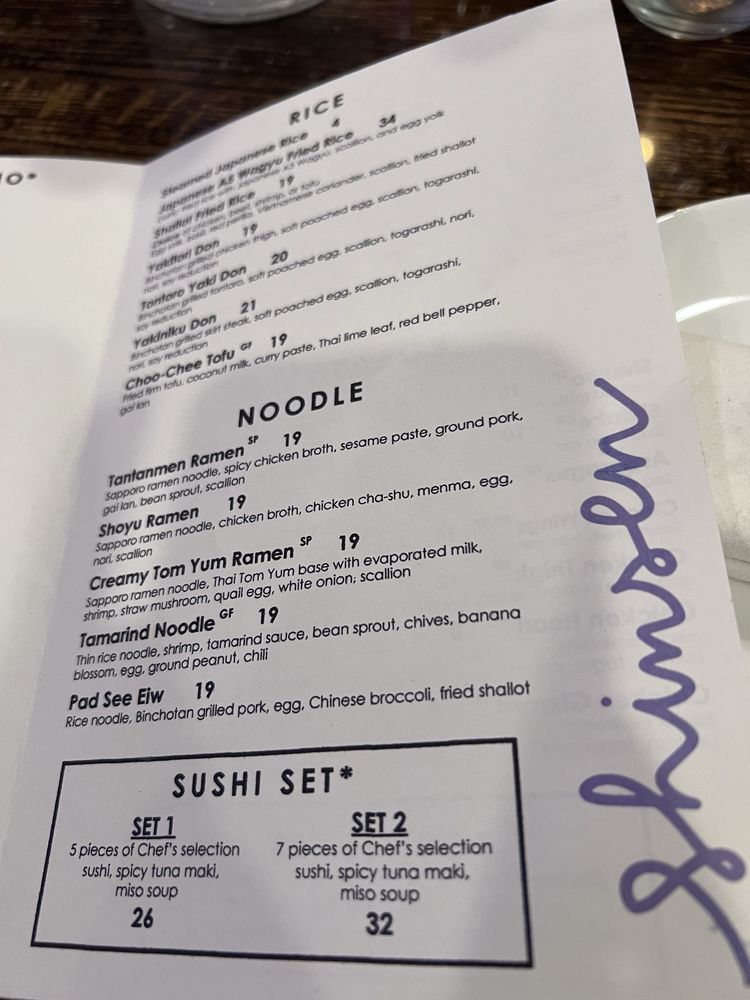 IO*
RICE
Steamed Japanese Rice 4
Japanese A5 Wagyu Fried Rice 34
rice with Japanese A5 Wagyu, scallion, and egg yolk
Shallot Fried Rice 19
choice of chicken, beef, shrimp, or tofu
egg yolk, basil, red perilla, Vietnamese coriander, scallion, fried shallot
Yakitori Don 19
Binchotan grilled chicken thigh, soft poached egg, scallion, togarashi,
nori, soy reduction
Tontoro Yaki Don 20
Binchotan grilled tontoro, soft poached egg, scallion, togarashi, nori,
soy reduction
Yakiniku Don 21
Binchotan grilled skirt steak, soft poached egg, scallion, togarashi,
nori, soy reduction
Choo-Chee Tofu GF 19
Fried firm tofu, coconut milk, curry paste, Thai lime leaf, red bell pepper,
gai lan
NOODLE
Tantanmen Ramen SP 19
Sapporo ramen noodle, spicy chicken broth, sesame paste, ground pork,
gai lan, bean sprout, scallion
Shoyu Ramen 19
Sapporo ramen noodle, chicken broth, chicken cha-shu, menma, egg,
nori, scallion
Creamy Tom Yum Ramen SP 19
Sapporo ramen noodle, Thai Tom Yum base with evaporated milk,
shrimp, straw mushroom, quail egg, white onion, scallion
Tamarind Noodle GF 19
Thin rice noodle, shrimp, tamarind sauce, bean sprout, chives, banana
blossom, egg, ground peanut, chili
Pad See Eiw 19
Rice noodle, Binchotan grilled pork, egg, Chinese broccoli, fried shallot
SUSHI SET*
SET 1
5 pieces of Chef's selection
sushi, spicy tuna maki,
miso soup
26
SET 2
7 pieces of Chef's selection
sushi, spicy tuna maki,
miso soup
32